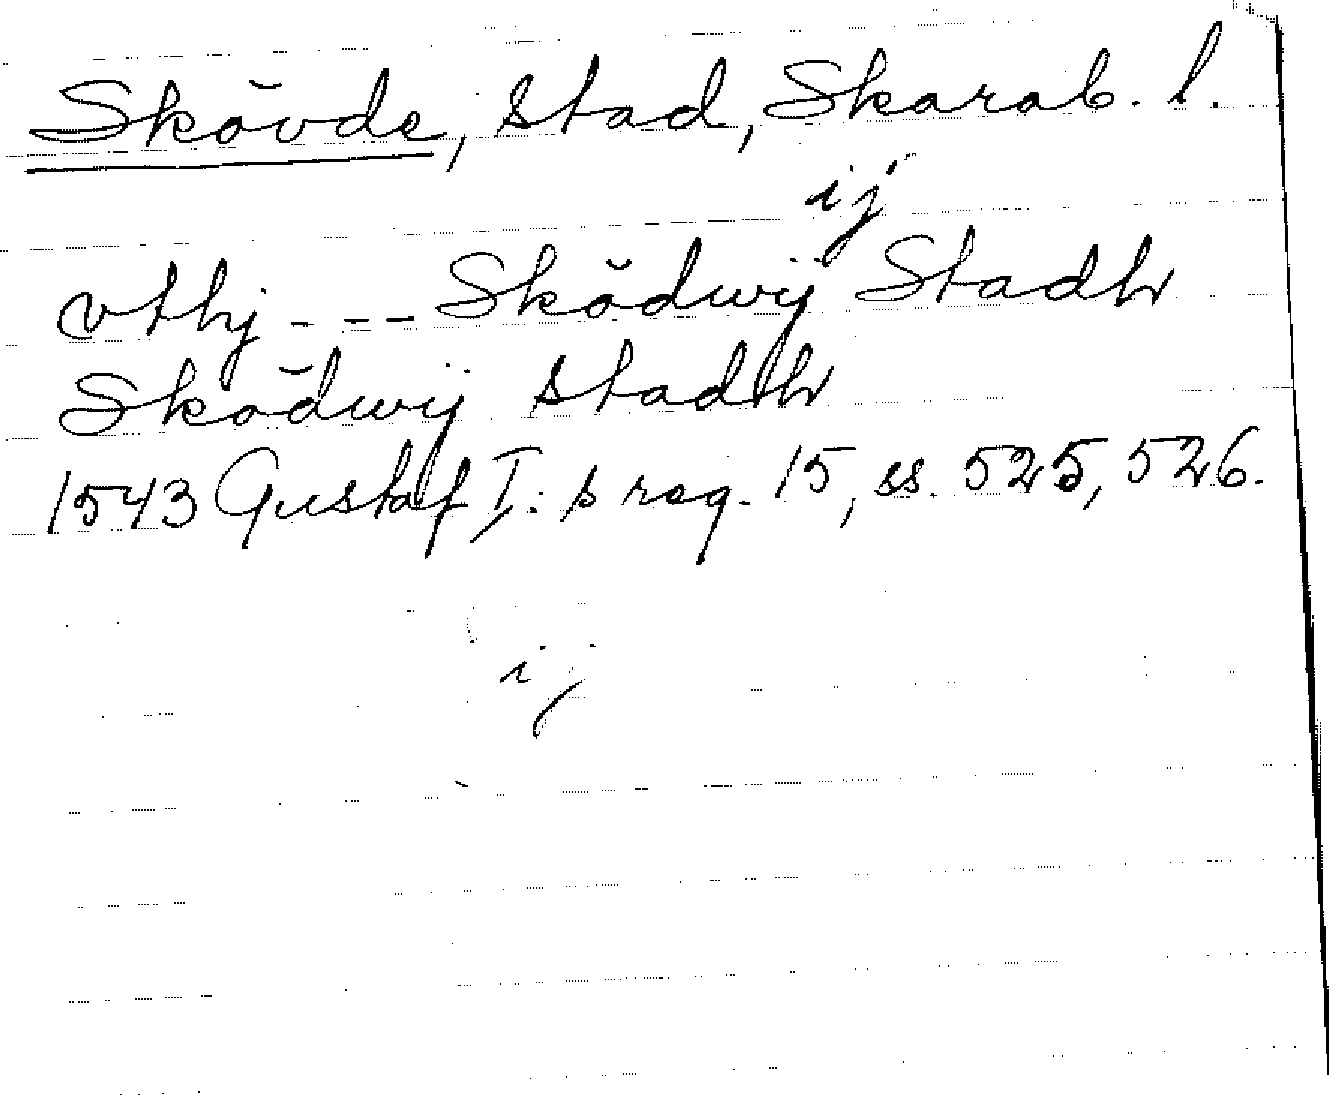 Skövde, stad, Skarab. l.
ij
vthj --- Sködwij Stadh
Sködwij stadh
1543 Gustaf I:s reg. 15, ss. 525, 526.
ij